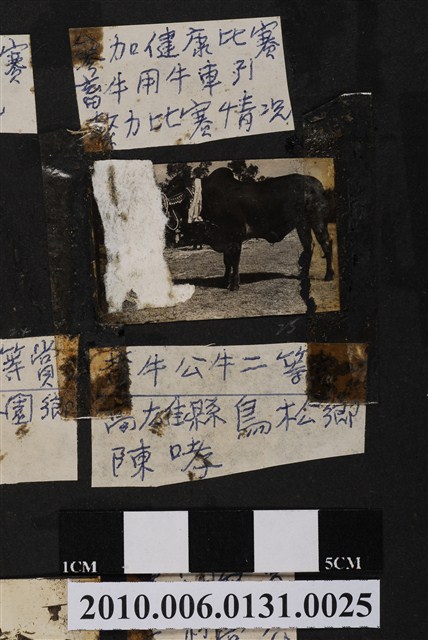 參加健康比賽
畜牛用牛車引
較力比賽情況
賽
黃牛公牛二等
高雄縣鳥松鄉
陳哮
等賞
園鄉
1CM
5CM
2010.006.0131.0025